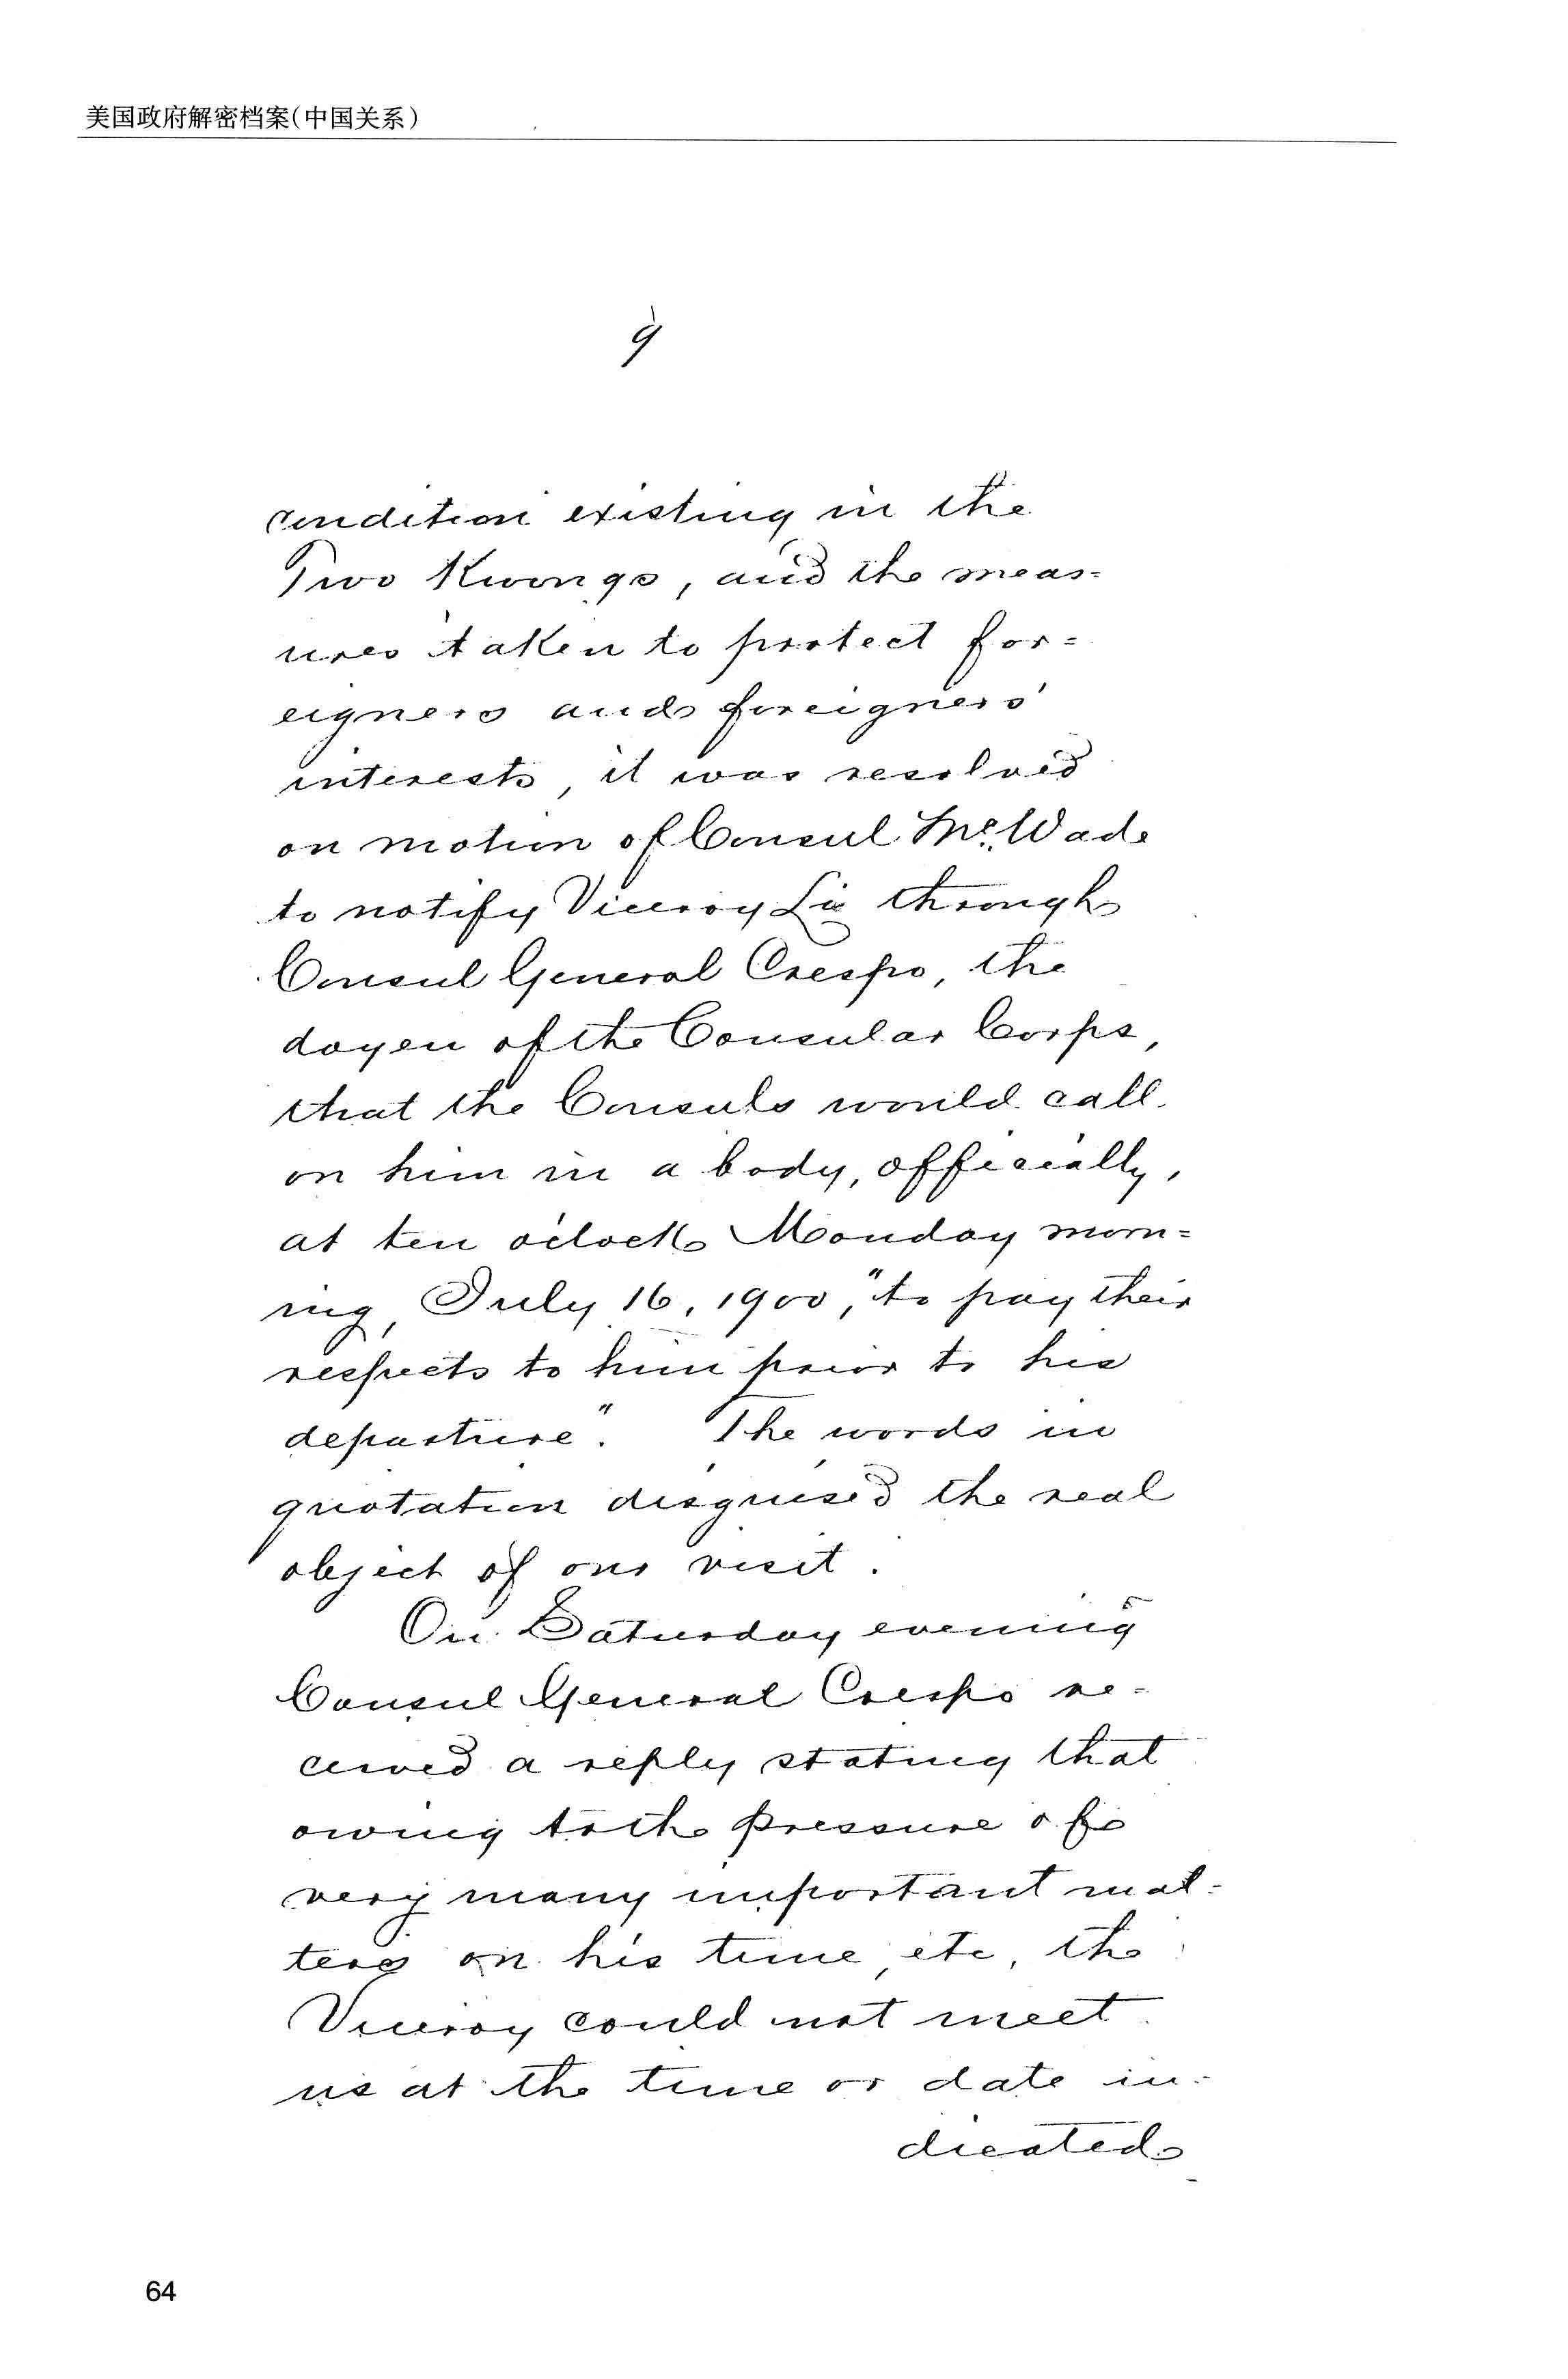 美国政府解密档案(中国关系)
9
condition existing in the
Two Kwongs, and the meas=
ures taken to protect for=
eigners and foreigners'
interests, it was resolved
on motion of Consul McWade
to notify Viceroy Li through
Consul General Crespo, the
doyen of the Consular Corps,
that the Consuls would call
on him in a body, officially,
at ten o'clock Monday morn=
ing, July 16, 1900, "to pay their
respects to him prior to his
departure". The words in
quotation disguised the real
object of our visit.
On Saturday evening
Consul General Crespo re-
ceived a reply stating that
owing to the pressure of
very many important mat-
ters on his time, etc, the
Viceroy could not meet
us at the time or date in-
dicated
64